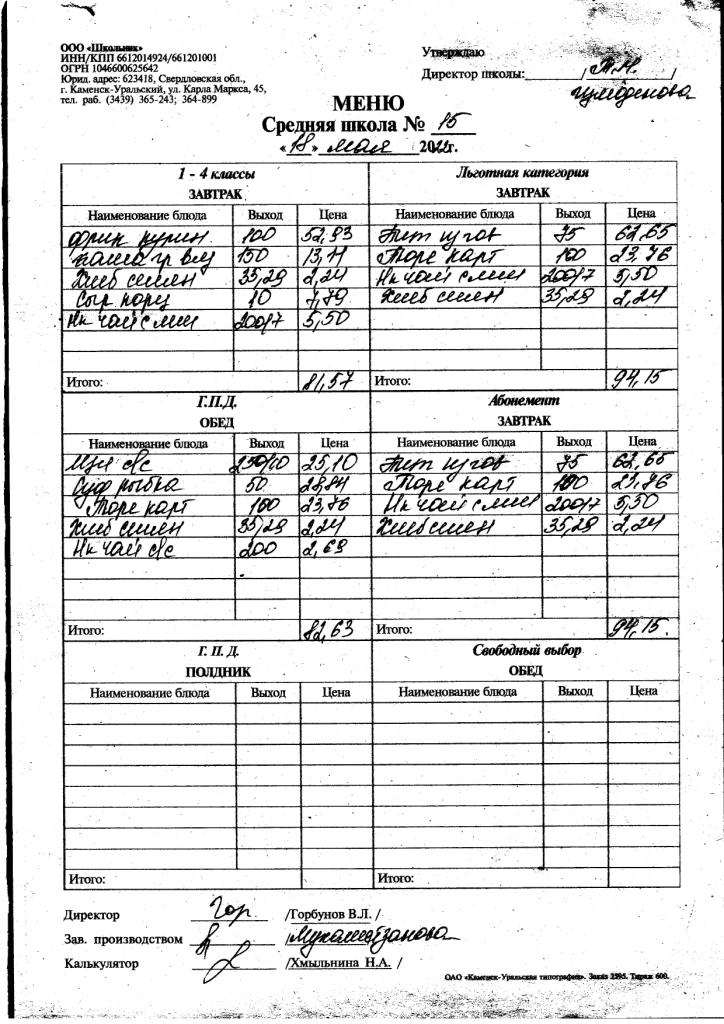 ООО «Школьник»
ИНН/КПП 6612014924/661201001
ОГРН 1046600625642
Юрид. адрес: 623418, Свердловская обл.,
г. Каменск-Уральский, ул. Карла Маркса, 45,
тел. раб. (3439) 365-243; 364-899
Утверждаю
Директор школы: / Т.Н. /
МЕНЮ
Средняя школа № 15
«18» мая 2022г.
1 - 4 классы
ЗАВТРАК
Наименование блюда Выход Цена
фрик курин 100 52,93
каша гр вяз 150 13,11
Хлеб смен 35,29 2,24
Сыр порц 10 7,79
Нк чай с лим 200/7 5,50
Итого: 81,57
Льготная категория
ЗАВТРАК
Наименование блюда Выход Цена
75 62,65
Пюре карт 100 23,76
Нк чай с лим 200/7 5,50
Хлеб смен 35,29 2,24
Итого: 94,15
Г.П.Д.
ОБЕД
Наименование блюда Выход Цена
с/с 250/10 25,10
Суф рыбка 50 28,84
Пюре карт 100 23,76
Хлеб смен 35,29 2,24
Нк чай с/с 200 2,69
Итого: 82,63
Абонемент
ЗАВТРАК
Наименование блюда Выход Цена
75 62,65
Пюре карт 100 23,76
Нк чай с лим 200/7 5,50
Хлеб смен 35,29 2,24
Итого: 94,15
Г. П. Д.
ПОЛДНИК
Наименование блюда Выход Цена
Итого:
Свободный выбор
ОБЕД
Наименование блюда Выход Цена
Итого:
Директор Гор /Горбунов В.Л. /
Зав. производством /Мухаметзанова
Калькулятор /Хмыльнина Н.А. /
ОАО «Каменск-Уральская типография». Заказ 2395. Тираж 600.